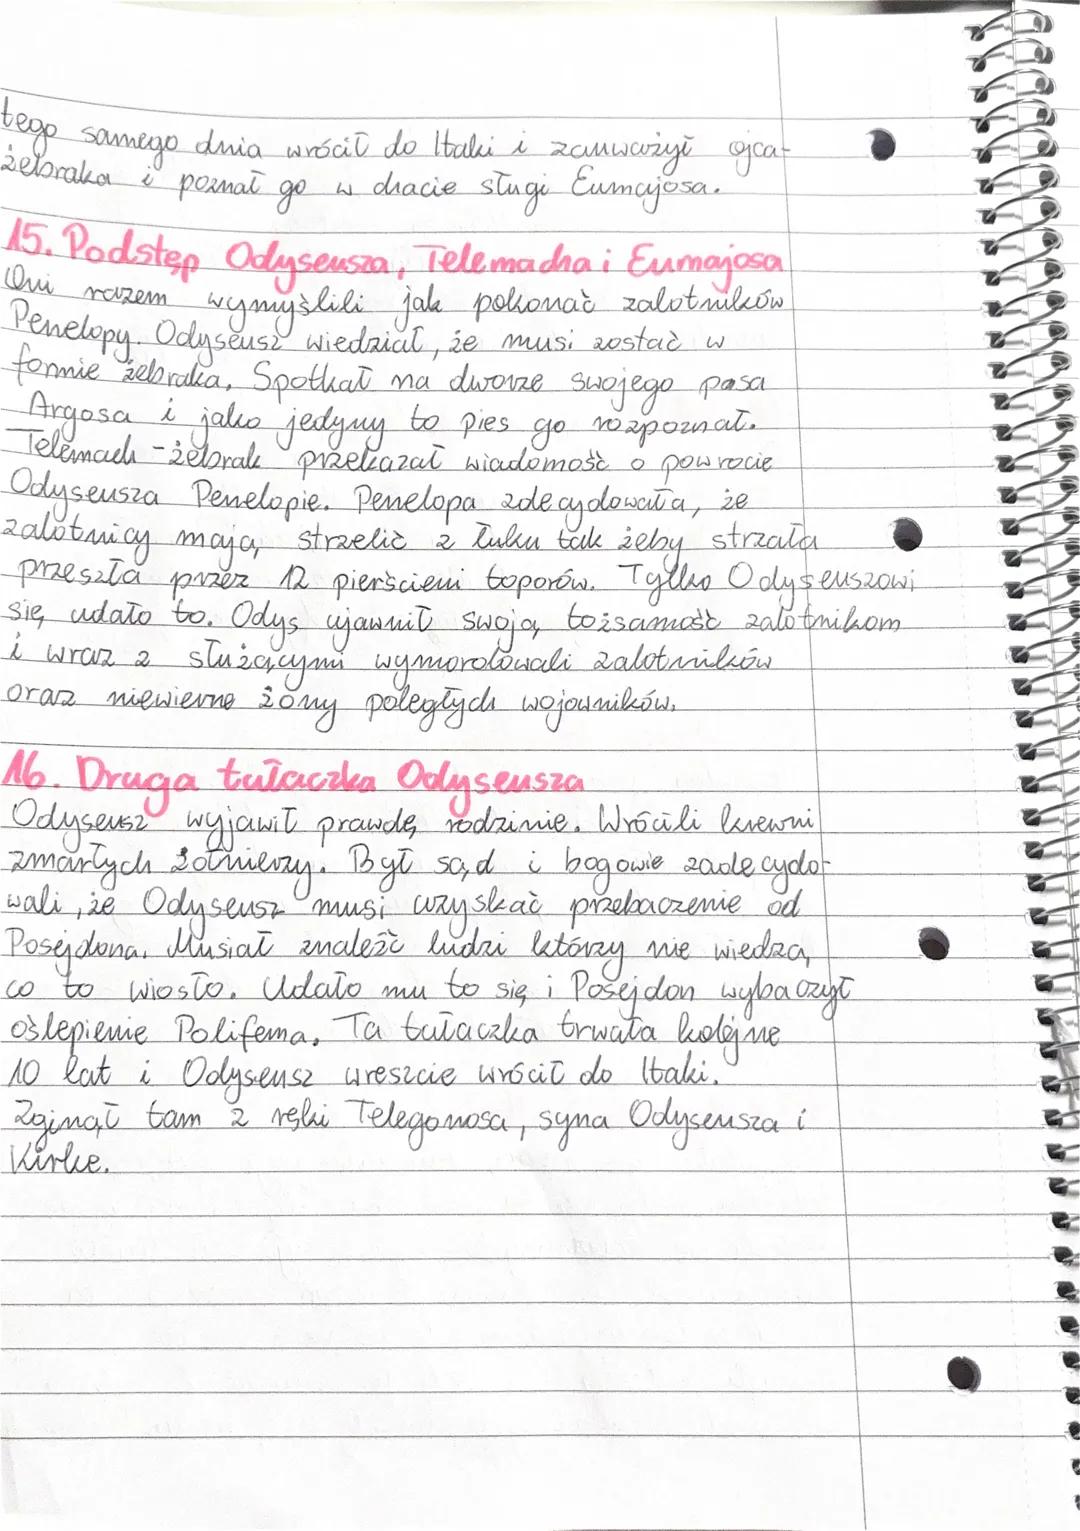 tego samego dnia wrócił do Itaki i zauważył ojca-
żebraka i poznał go w chacie sługi Eumajosa.
15. Podstęp Odyseusza, Telemacha i Eumajosa
Oni razem wymyślili jak pokonać zalotników
Penelopy. Odyseusz wiedział, że musi zostać w
formie żebraka. Spotkał na dworze swojego psa
Argosa i jako jedyny to pies go rozpoznał.
Telemach - żebrak przekazał wiadomość o powrocie
Odyseusza Penelopie. Penelopa zdecydowała, że
zalotnicy mają strzelić z łuku tak żeby strzała
przeszła przez 12 pierścieni toporów. Tylko Odyseuszowi
się udało to. Odys ujawnił swoją tożsamość zalotnikom
i wraz z służącymi wymordowali zalotników
oraz niewierne żony poległych wojowników.
16. Druga tułaczka Odyseusza
Odyseusz wyjawił prawdę rodzinie. Wrócili krewni
zmarłych żołnierzy. Był sąd i bogowie zadecydo-
wali, że Odyseusz musi uzyskać przebaczenie od
Posejdona. Musiał znaleźć ludzi którzy nie wiedzą,
co to wiosło. Udało mu to się i Posejdon wybaczył
oślepienie Polifema. Ta tułaczka trwała kolejne
10 lat i Odyseusz wreszcie wrócił do Itaki.
Zginął tam z ręki Telegonosa, syna Odyseusza i
Kirke.